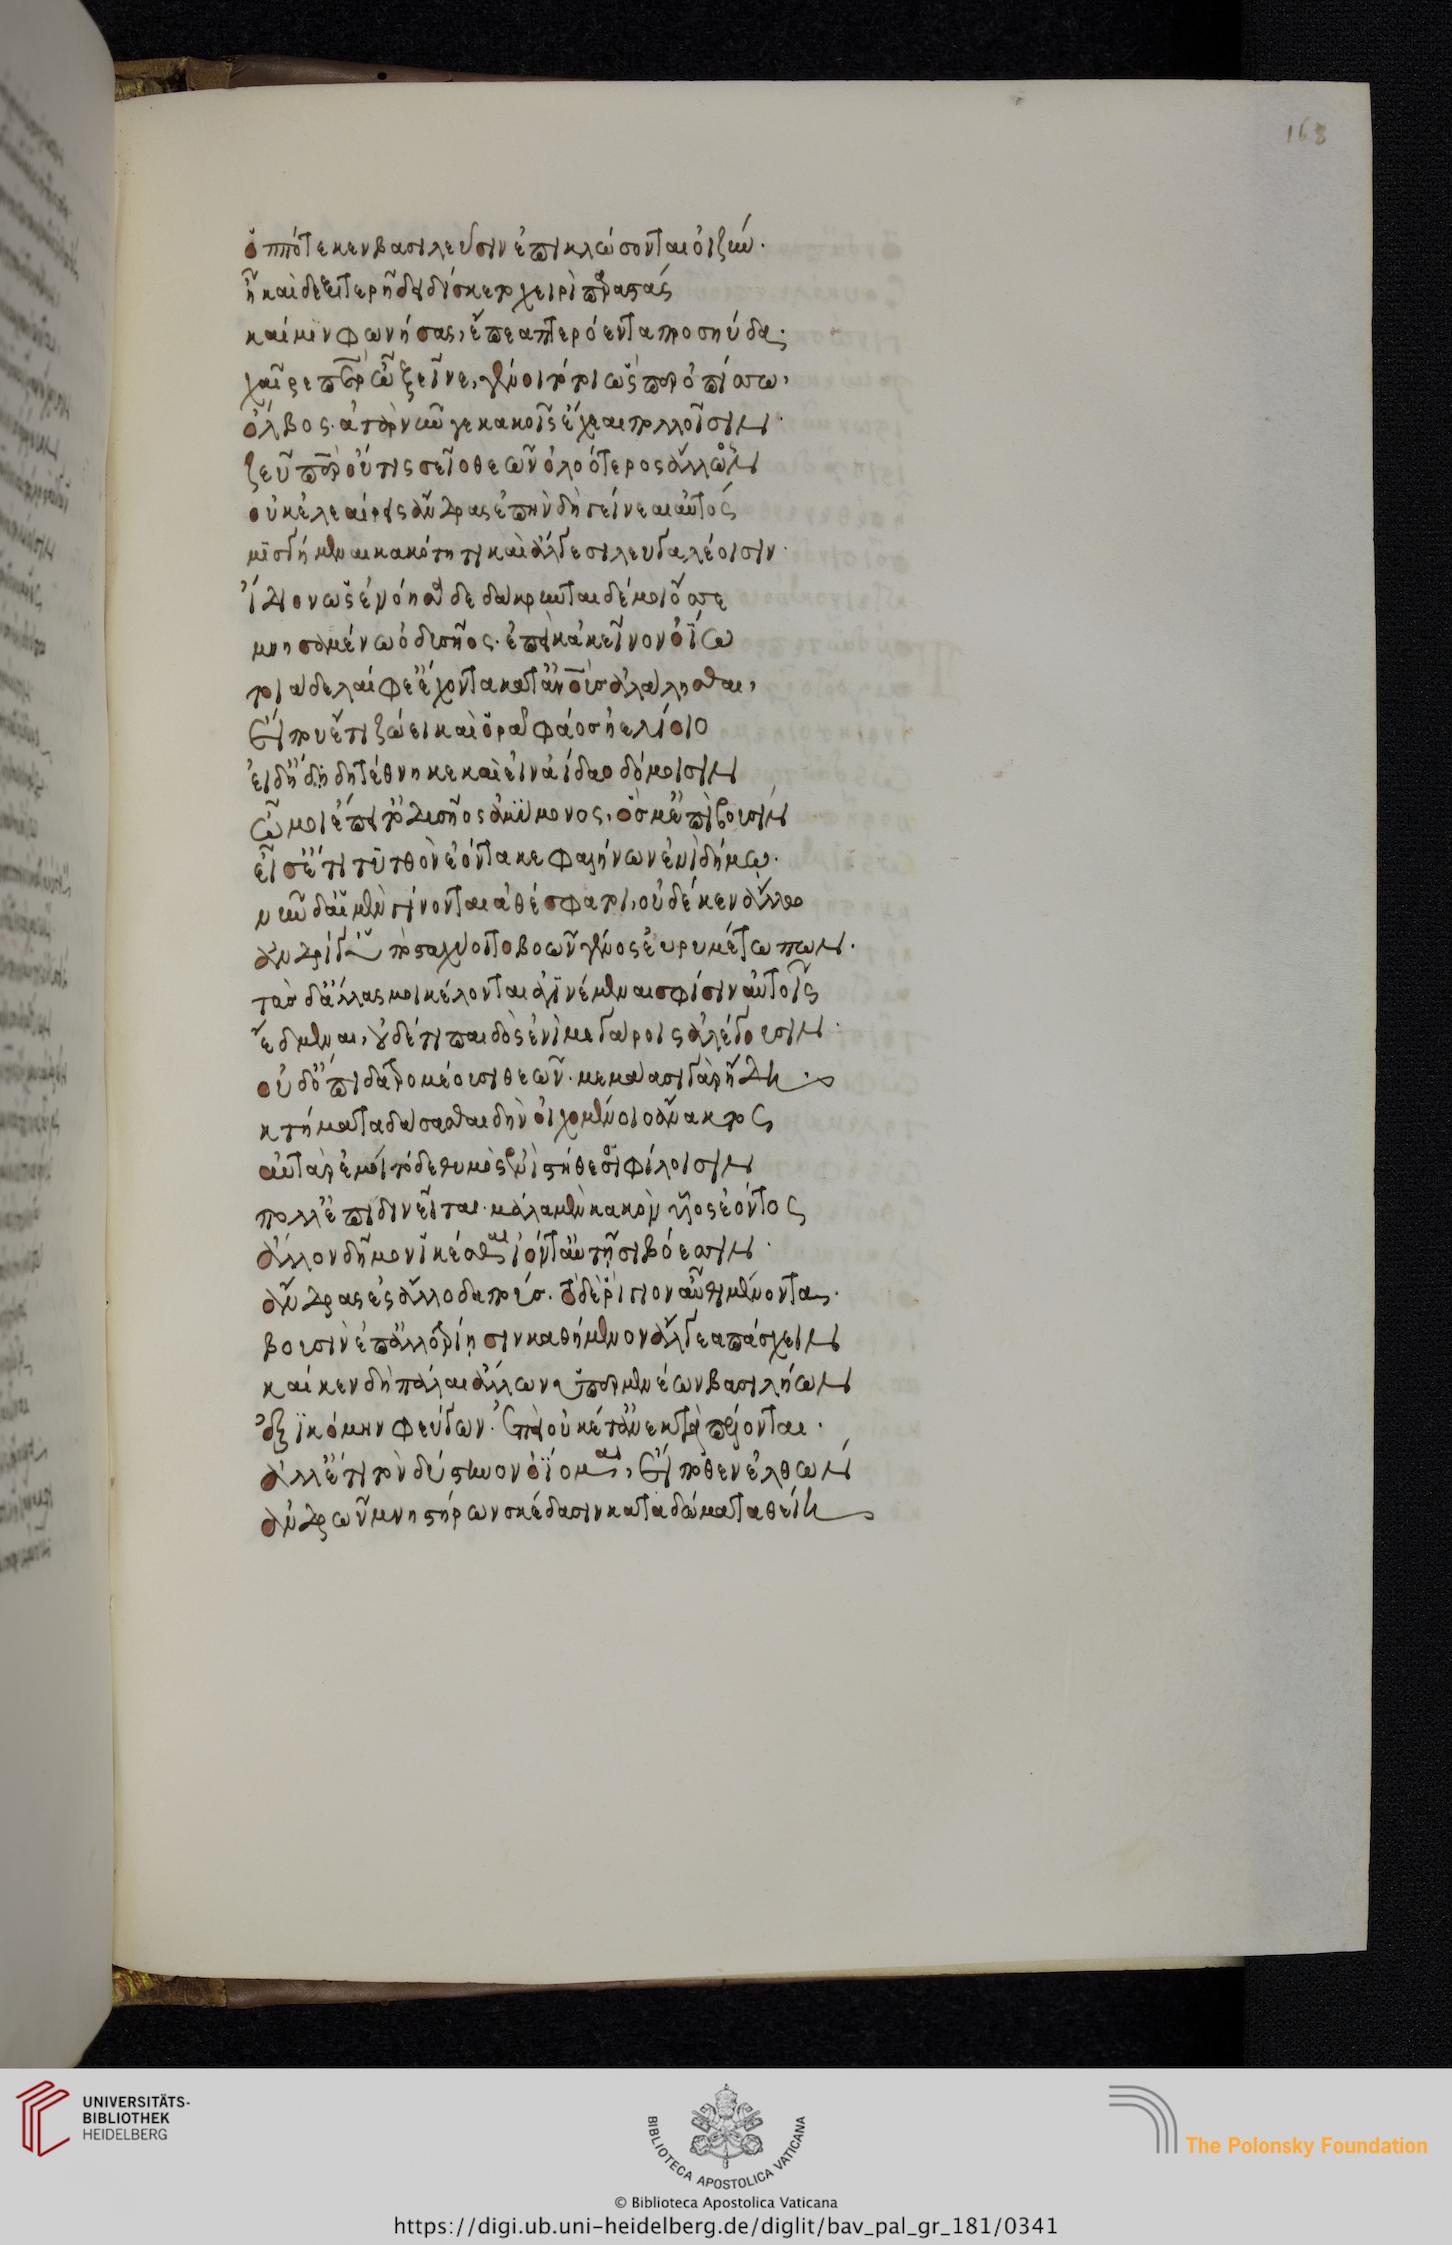 168
ὁππότε κεν βασιλεῦσιν ἐπικλώσονται ὀιζύν·
ἦ καὶ δεξιτερῇ δειδίσκετο χειρὶ παραστάς
καί μιν φωνήσας, ἔπεα πτερόεντα προσηύδα·
χαῖρε πάτερ ὦ ξεῖνε, γένοιτό τοι ὥς περ ὀπίσσω,
ὄλβος· ἀτὰρ νῦν γε κακοῖς ἔχεαι πολλοῖσιν·
ζεῦ πάτερ οὔτις σεῖο θεῶν ὀλοώτερος ἄλλος
οὐκ ἐλεαίρεις ἄνδρας ἐπὴν δὴ γείνεαι αὐτός
μισγέμεναι κακότητι καὶ ἄλγεσι λευγαλέοισιν·
ἴδιον ὡς ἐνόησα δεδάκρυνται δέ μοι ὄσσε
μνησαμένω ὀδυσῆος· ἐπεὶ κἀκεῖνον ὀΐω
τοιάδε λαίφε' ἔχοντα κατ' ἀνθρώπους ἀλάλησθαι,
εἴ που ἔτι ζώει καὶ ὁρᾷ φάος ἠελίοιο
εἰ δ' ἤδη τέθνηκε καὶ εἰν ἀίδαο δόμοισιν
ὤ μοι ἔπειτ' ὀδυσῆος ἀμύμονος, ὅς μ' ἐπὶ βουσίν
εἷσ' ἔτι τυτθὸν ἐόντα κεφαλήνων ἐνὶ δήμω·
νῦν δ' αἱ μὲν γίνονται ἀθέσφατοι, οὐδέ κεν ἄλλως
ἀνδρί γ' ὑποσταχύοιτο βοῶν γένος εὐρυμετώπων·
τὰς δ' ἄλλοι με κέλονται ἀγινέμεναί σφισιν αὐτοῖς
ἔδμεναι, οὐδέ τι παιδὸς ἐνὶ μεγάροις ἀλέγουσιν·
οὐδ' ὄπιδα τρομέουσι θεῶν· μεμάασι γὰρ ἤδη
κτήματα δάσσασθαι δὴν οἰχομένοιο ἄνακτος
αὐτὰρ ἐμοὶ τόδε θυμὸς ἐνὶ στήθεσσι φίλοισιν
πόλλ' ἐπιδινεῖται· μάλα μὲν κακὸν υἷος ἐόντος
ἄλλον δῆμον ἱκέσθαι ἰόντ' αὐτῇσι βόεσσιν·
ἄνδρας ἐς ἀλλοδαπούς· τὸ δὲ ῥίγιον αὖθι μένοντα·
βουσὶν ἐπ' ἀλλοτρίῃσιν καθήμενον ἄλγεα πάσχειν
καί κεν δὴ πάλαι ἄλλον ὑπερμενέων βασιλήων
ἐξικόμην φεύγων· ἐπεὶ οὐκέτ' ἀνεκτὰ πέλονται·
ἀλλ' ἔτι τὸν δύστηνον ὀΐομαι, εἴ ποθεν ἐλθών
ἀνδρῶν μνηστήρων σκέδασιν κατὰ δώματα θείη
UNIVERSITÄTS-
BIBLIOTHEK
HEIDELBERG
BIBLIOTECA APOSTOLICA VATICANA
The Polonsky Foundation
© Biblioteca Apostolica Vaticana
https://digi.ub.uni-heidelberg.de/diglit/bav_pal_gr_181/0341